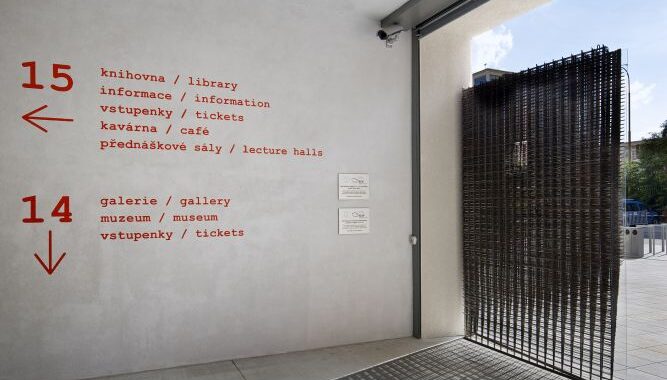 15
knihovna / library
informace / information
vstupenky / tickets
kavárna / café
přednáškové sály / lecture halls
14
galerie / gallery
muzeum / museum
vstupenky / tickets